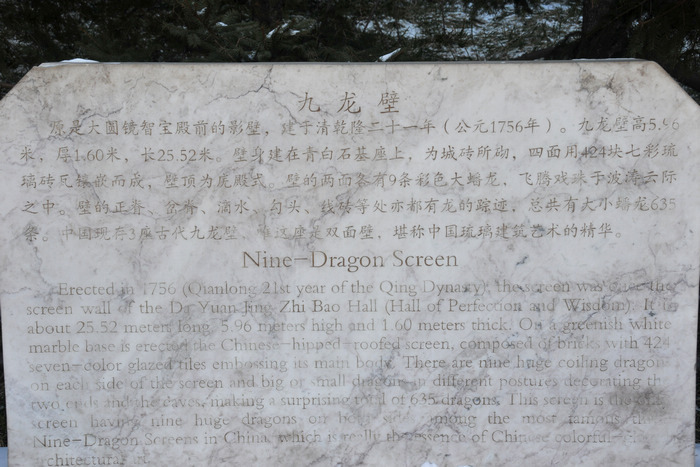 九龙壁
源是大圆镜智宝殿前的影壁，建于清乾隆二十一年（公元1756年）。九龙壁高5.96
米，厚1.60米，长25.52米。壁身建在青白石基座上，为城砖所砌，四面用424块七彩琉
璃砖瓦镶嵌而成，壁顶为庑殿式。壁的两面各有9条彩色大蟠龙，飞腾戏珠于波涛云际
之中。壁的正脊、岔脊、滴水、勾头、钱砖等处亦都有龙的踪迹，总共有大小蟠龙635
条。中国现存3座古代九龙壁，唯这座是双面壁，堪称中国琉璃建筑艺术的精华。
Nine-Dragon Screen
Erected in 1756 (Qianlong 21st year of the Qing Dynasty), the screen was once the
screen wall of the Da Yuan Jing Zhi Bao Hall (Hall of Perfection and Wisdom). It is
about 25.52 meters long, 5.96 meters high and 1.60 meters thick. On a greenish white
marble base is erected the Chinese-hipped-roofed screen, composed of bricks with 424
seven-color glazed tiles embossing its main body. There are nine huge coiling dragons
on each side of the screen and big or small dragons in different postures decorating the
two ends and the eaves, making a surprising total of 635 dragons. This screen is the
screen having nine huge dragons on both sides among the most famous
Nine-Dragon Screens in China, which is really the essence of Chinese colorful-
architectural art.